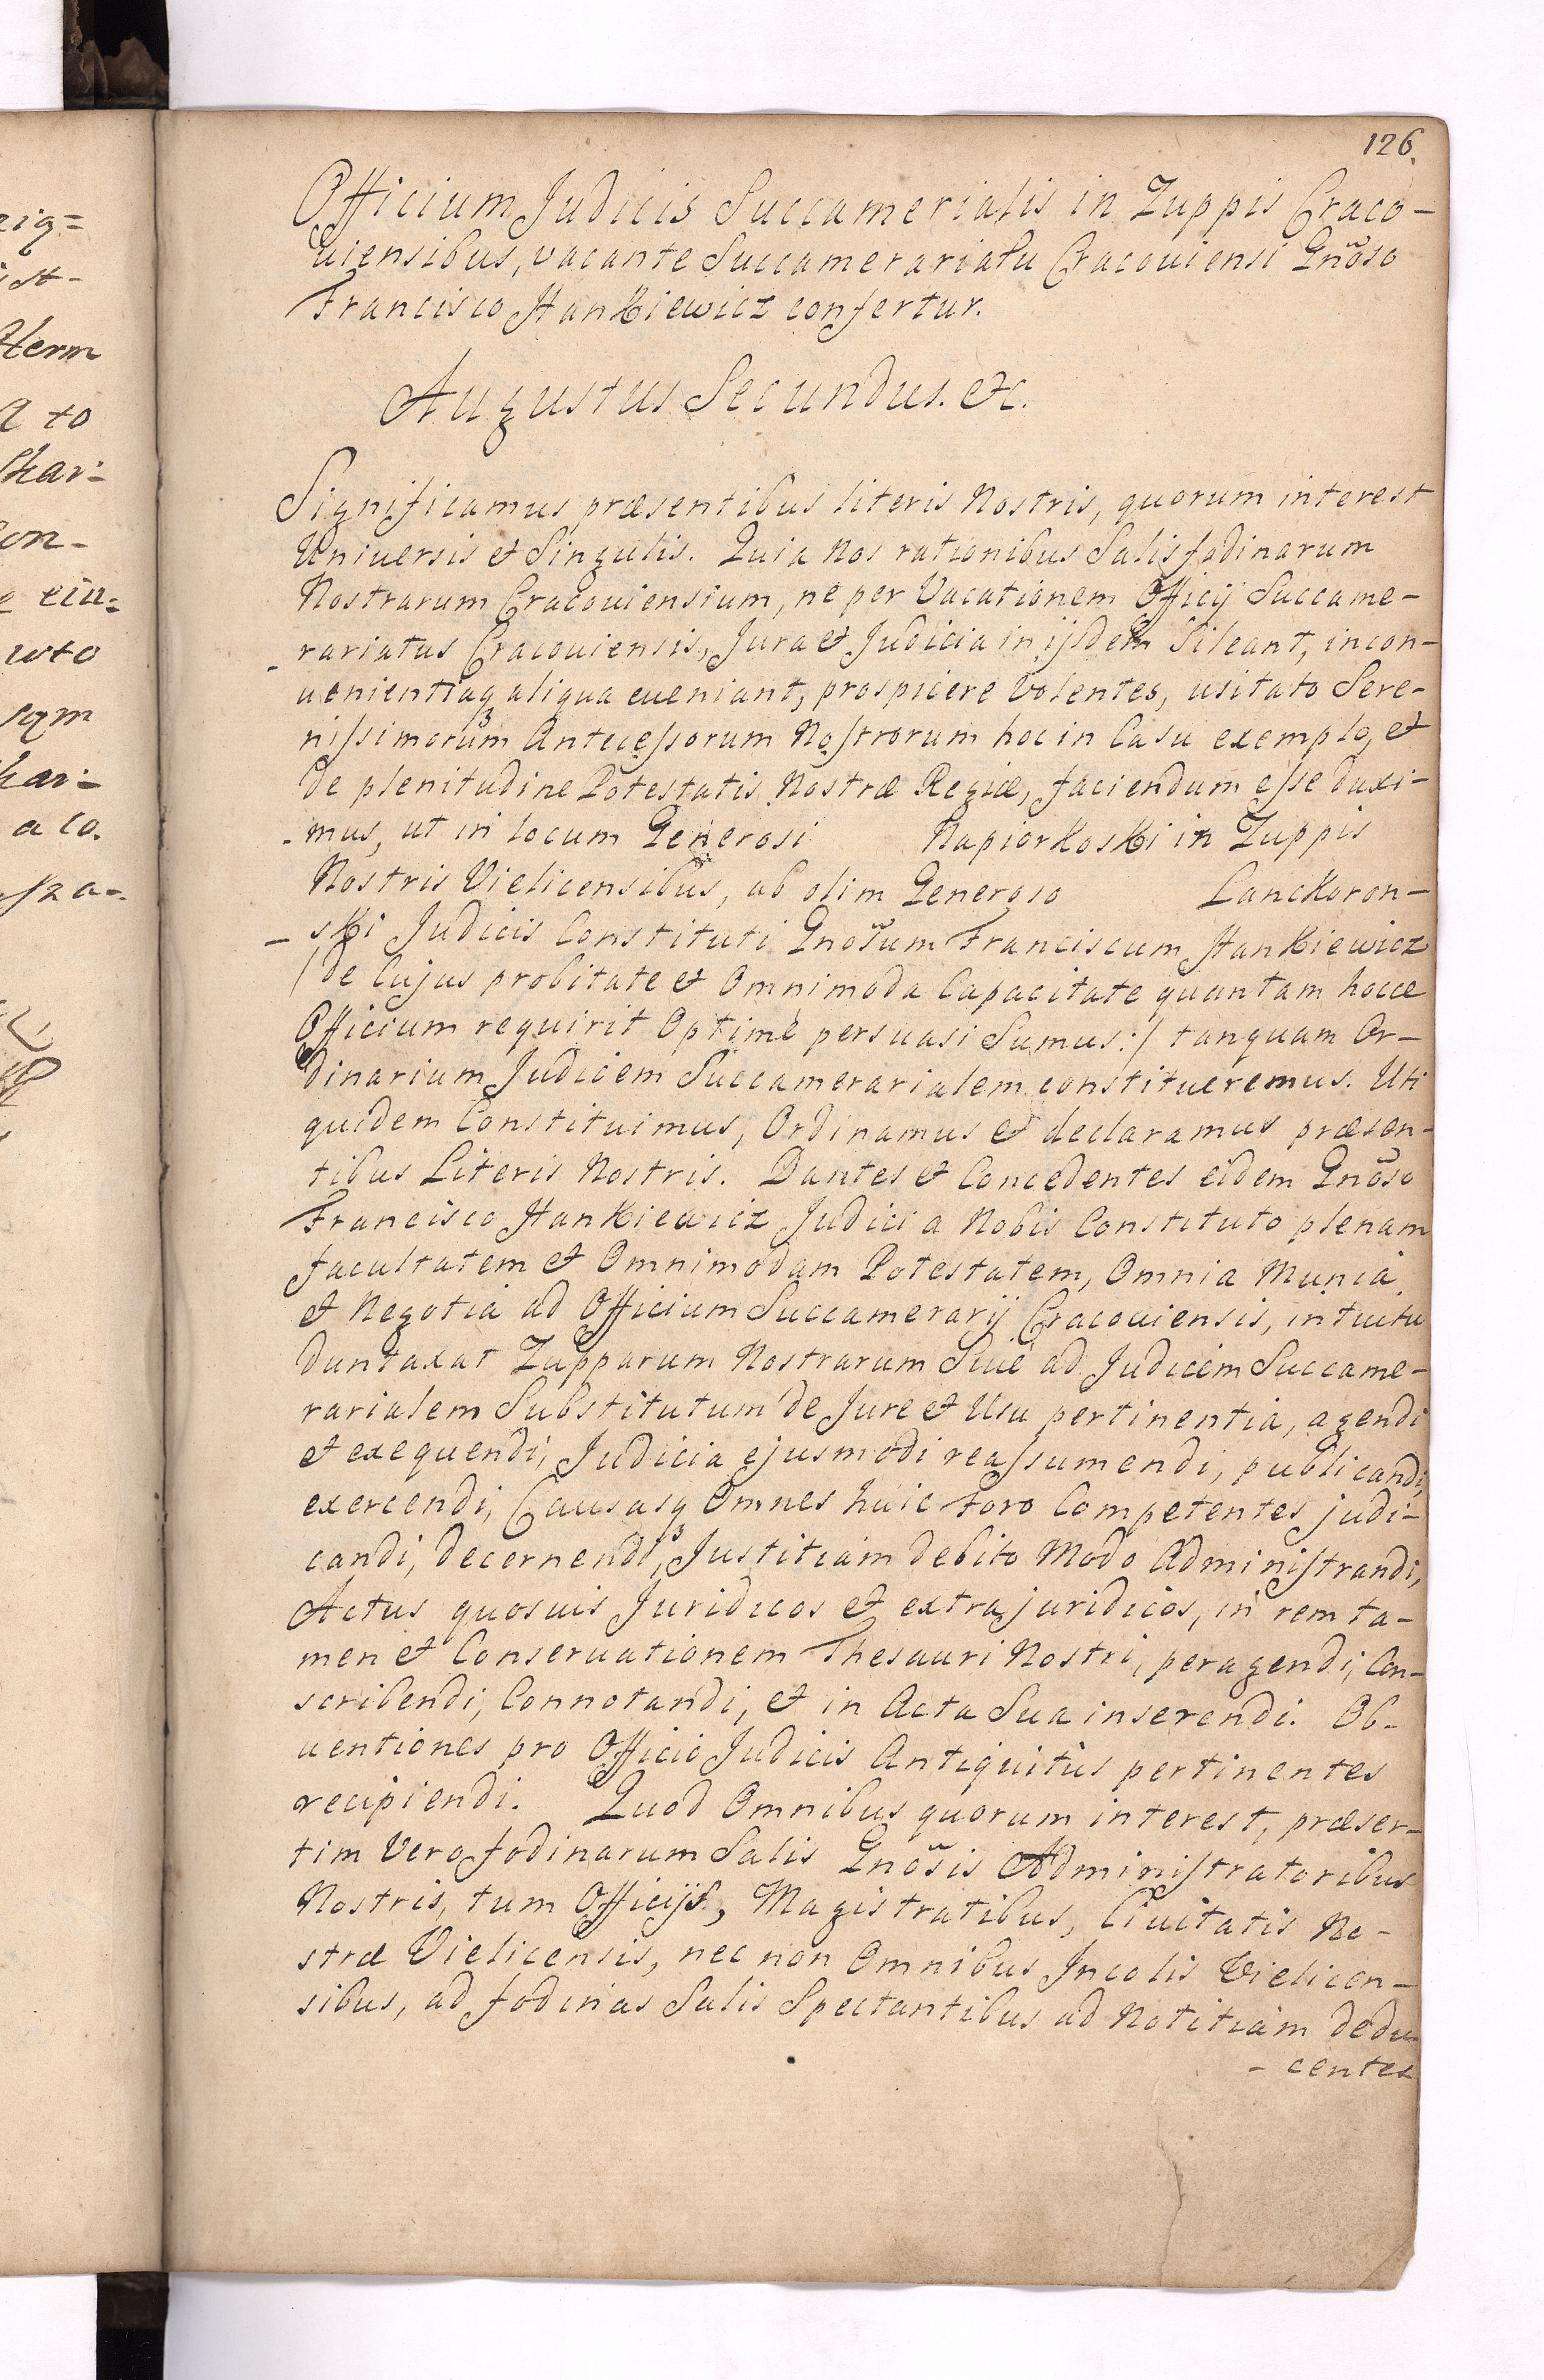 126.
Officium Judicis Succamerialis in Zuppis Craco-
uiensibus, vacante Succamerariatu Cracouiensi Gnõso
Francisco Hankiewicz confertur.
Augustus Secundus. etc.
Significamus præsentibus literis Nostris, quorum interest
Uniuersis et Singulis. Quia Nos rationibus Salisfodinarum
Nostrarum Cracouiensium, ne per Vacationem Officij Succame-
rariatus Cracouiensis, Jura et Judicia in ijsdem Sileant, incon-
uenientiaq aliqua eueniant, prospicere Volentes, usitato Sere-
nissimorum Antecessorum Nostrorum hoc in Casu exemplo, et
de plenitudine Potestatis Nostræ Regiæ, faciendum esse duxi-
mus, ut in locum Generosi Napiorkoski in Zuppis
Nostris Vielicensibus, ab olim Generoso Lanckoron-
ski Judicis Constituti Gnosum Franciscum Hankiewicz
/de Cujus probitate et Omnimoda Capacitate quantam hocce
Officium requirit Optime persuasi Sumus:/ tanquam Or-
dinarium Judicem Succamerarialem constitueremus. Uti
quidem Constituimus, Ordinamus et declaramus præsen-
tibus Literis Nostris. Dantes et Concedentes eidem Gnõso
Francisco Hankiewicz Judici a Nobis Constituto plenam
facultatem et Omnimodam Potestatem, Omnia Munia
et Negotia ad Officium Succamerarij Cracouiensis, intuitu
duntaxat Zupparum Nostrarum Siue ad Judicem Succame-
rarialem Substitutum de Jure et Usu pertinentia, agendi
et exequendi, Judicia ejusmodi reassumendi, publicandi,
exercendi, Causasq Omnes huic Foro Competentes judi-
candi, decernendi, Justitiam debito Modo Administrandi,
Actus quosuis Juridicos et extrajuridicos, in rem ta-
men et Conseruationem Thesauri Nostri, peragendi, Con-
scribendi, Connotandi, et in Acta Sua inserendi. Ob-
uentiones pro Officio Judicis Antiquitus pertinentes
recipiendi. Quod Omnibus quorum interest, præser-
tim Vero fodinarum Salis Gnõsis Administratoribus
Nostris, tum Officijs, Magistratibus, Ciuitatis No-
stræ Vielicensis, nec non Omnibus Incolis Vielicen-
sibus, ad fodinas Salis Spectantibus ad Notitiam dedu-
- centes